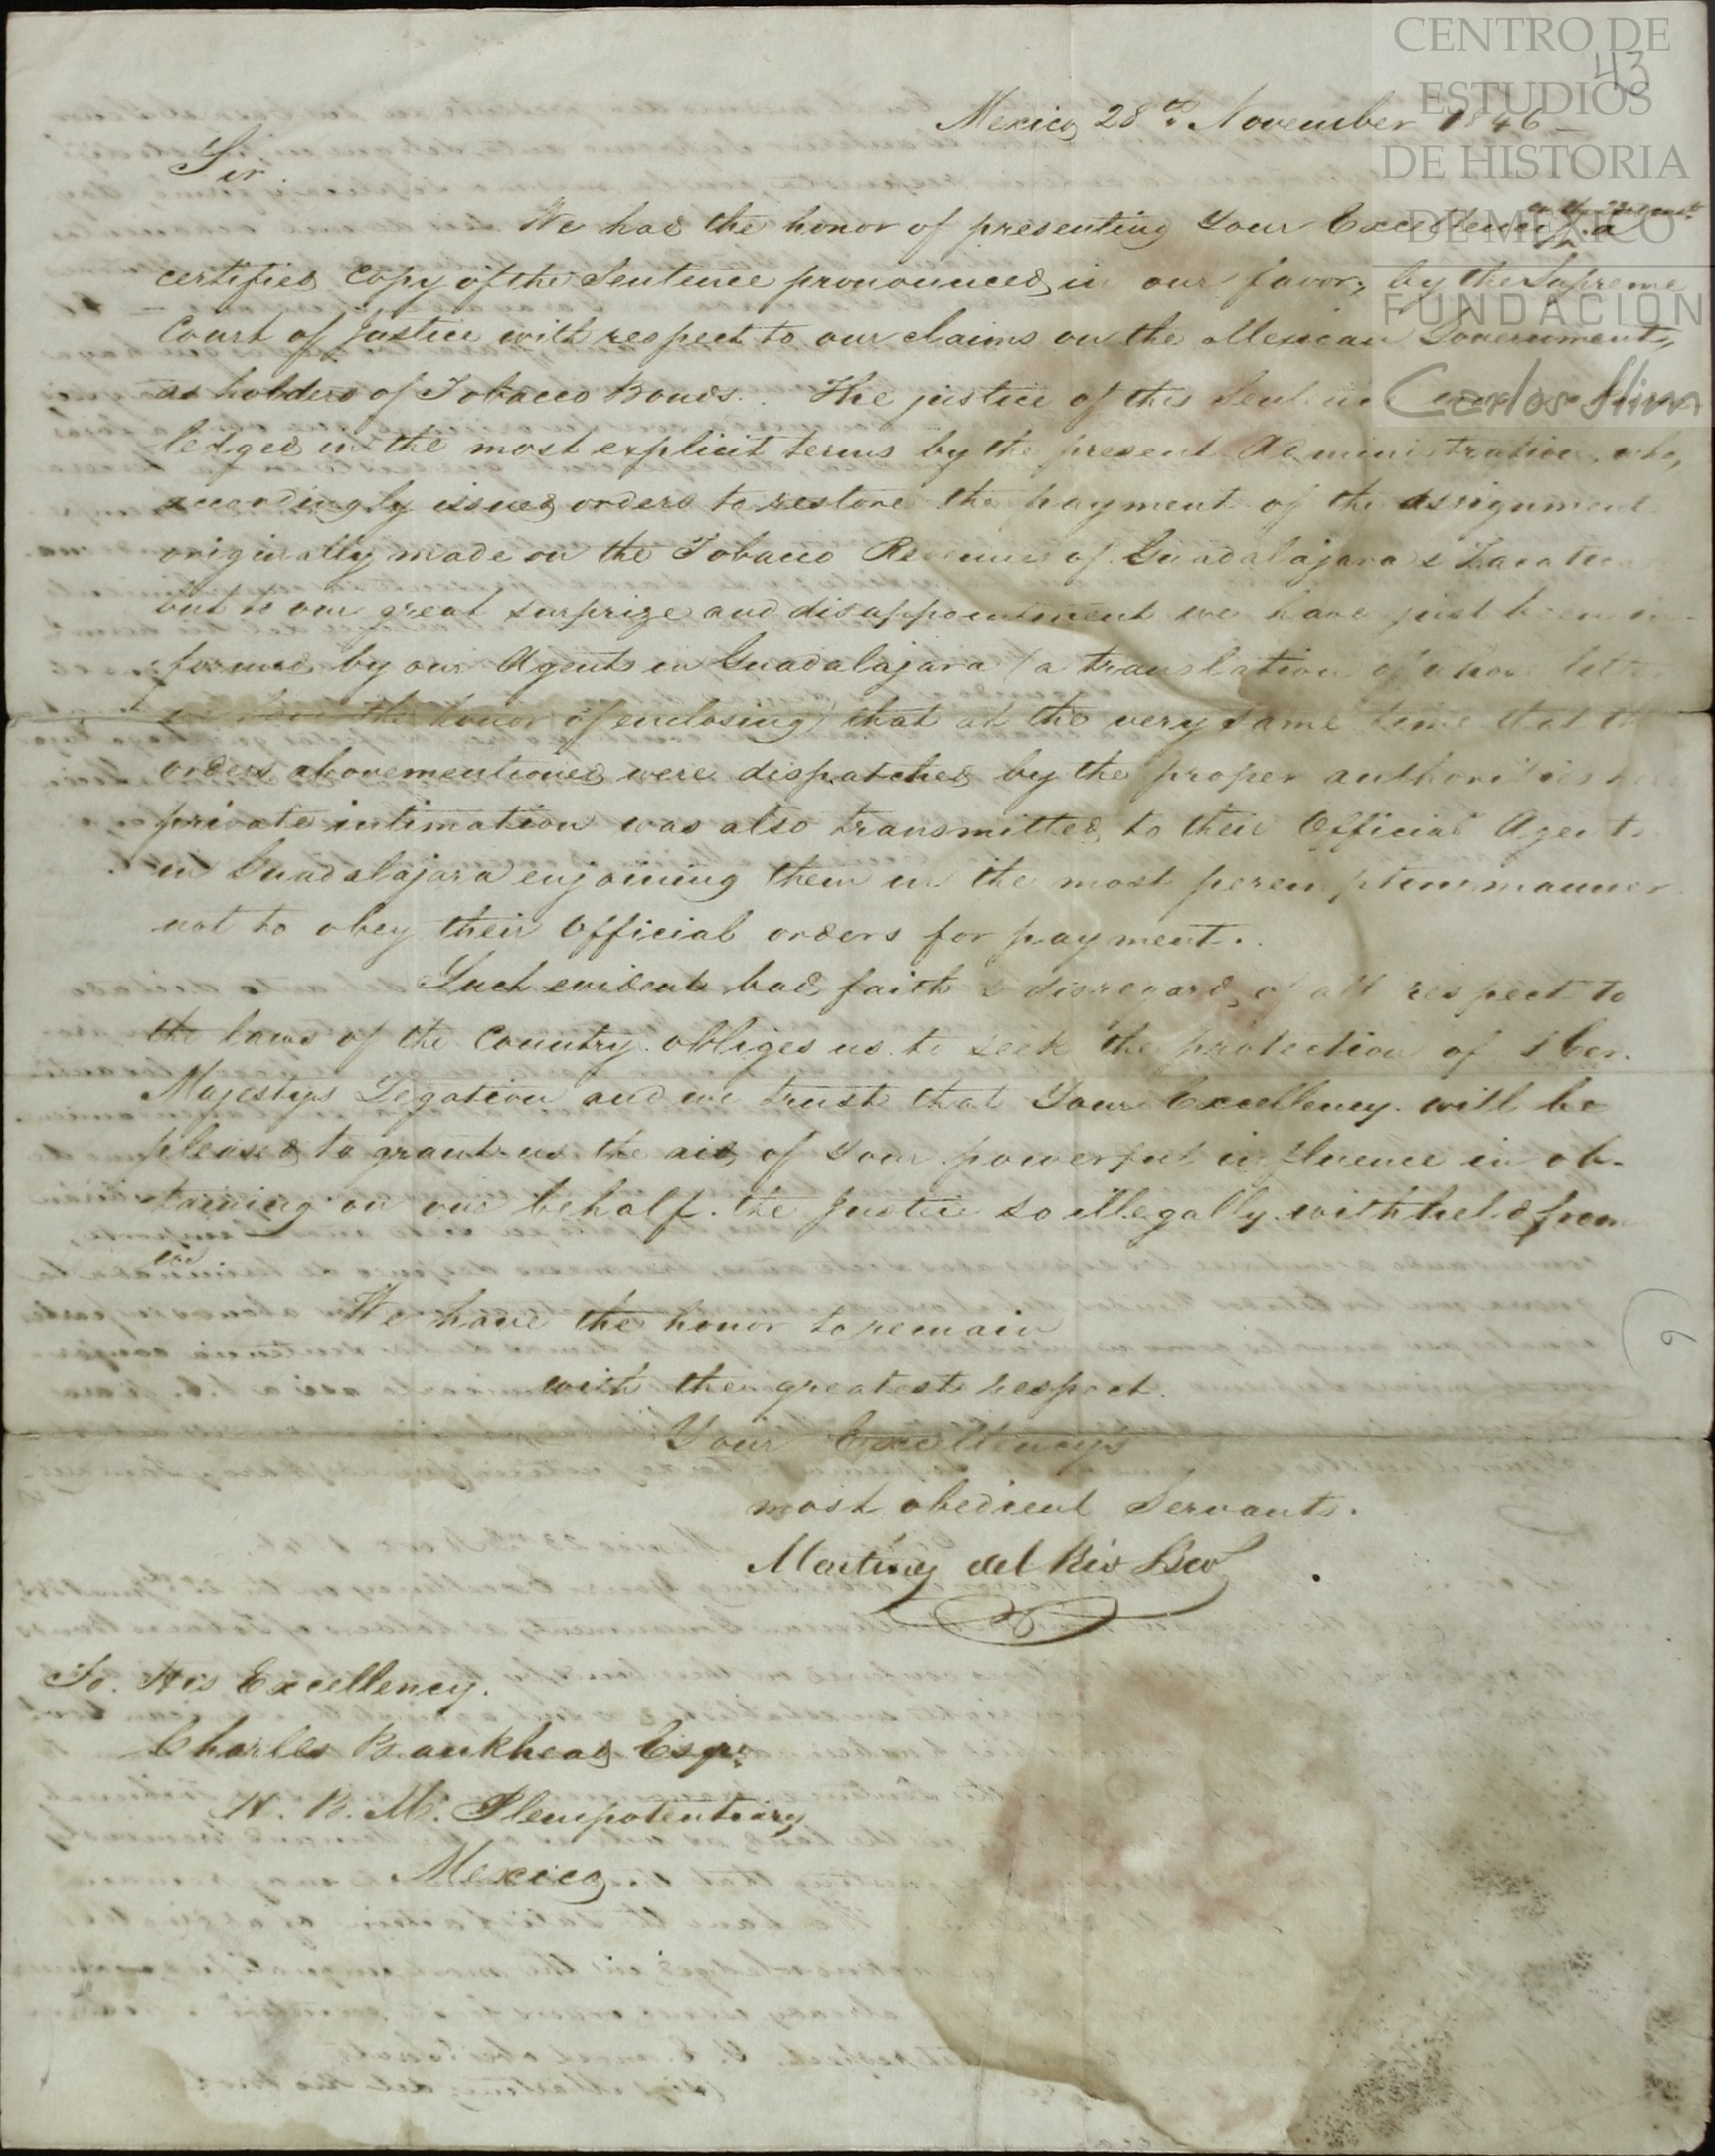 CENTRO DE
ESTUDIOS
DE HISTORIA
DE MEXICO
FUNDACION
Carlos Slim
43
Mexico 28th November 1846
Sir
We had the honor of presenting Your Excellency on the 23d inst. a
certified Copy of the Sentence pronounced in our favor, by the Supreme
Court of Justice with respect to our claims on the Mexican Government,
as holders of Tobacco Bonds. The justice of this Sentence
ledged in the most explicit terms by the present Administration, who,
accordingly issued orders to restore the payment of the assignment
originally made on the Tobacco Revenues of Guadalajara &
but to our great surprize and disappointment we have just been in-
formed by our Agents in Guadalajara (a translation of whose letter
we have the honor of enclosing) that at the very same time that the
orders abovementioned were dispatched by the proper authorities
private intimation was also transmitted to their Official Agents
in Guadalajara enjoining them in the most peremptory manner
not to obey their Official orders for payment.
Such evident bad faith & disregard of all respect to
the laws of the Country obliges us to seek the protection of Her
Majestys Legation and we trust that Your Excellency will be
pleased to grant us the aid of Your powerful influence in ob-
taining on our behalf the Justice so illegally withheld from
us
We have the honor to remain
with the greatest respect.
Your Excellency's
most obedient Servants.
Martinez del Rio Bros
To. His Excellency.
Charles Bankhead Esqr.
H. B. M. Plenipotentiary
Mexico